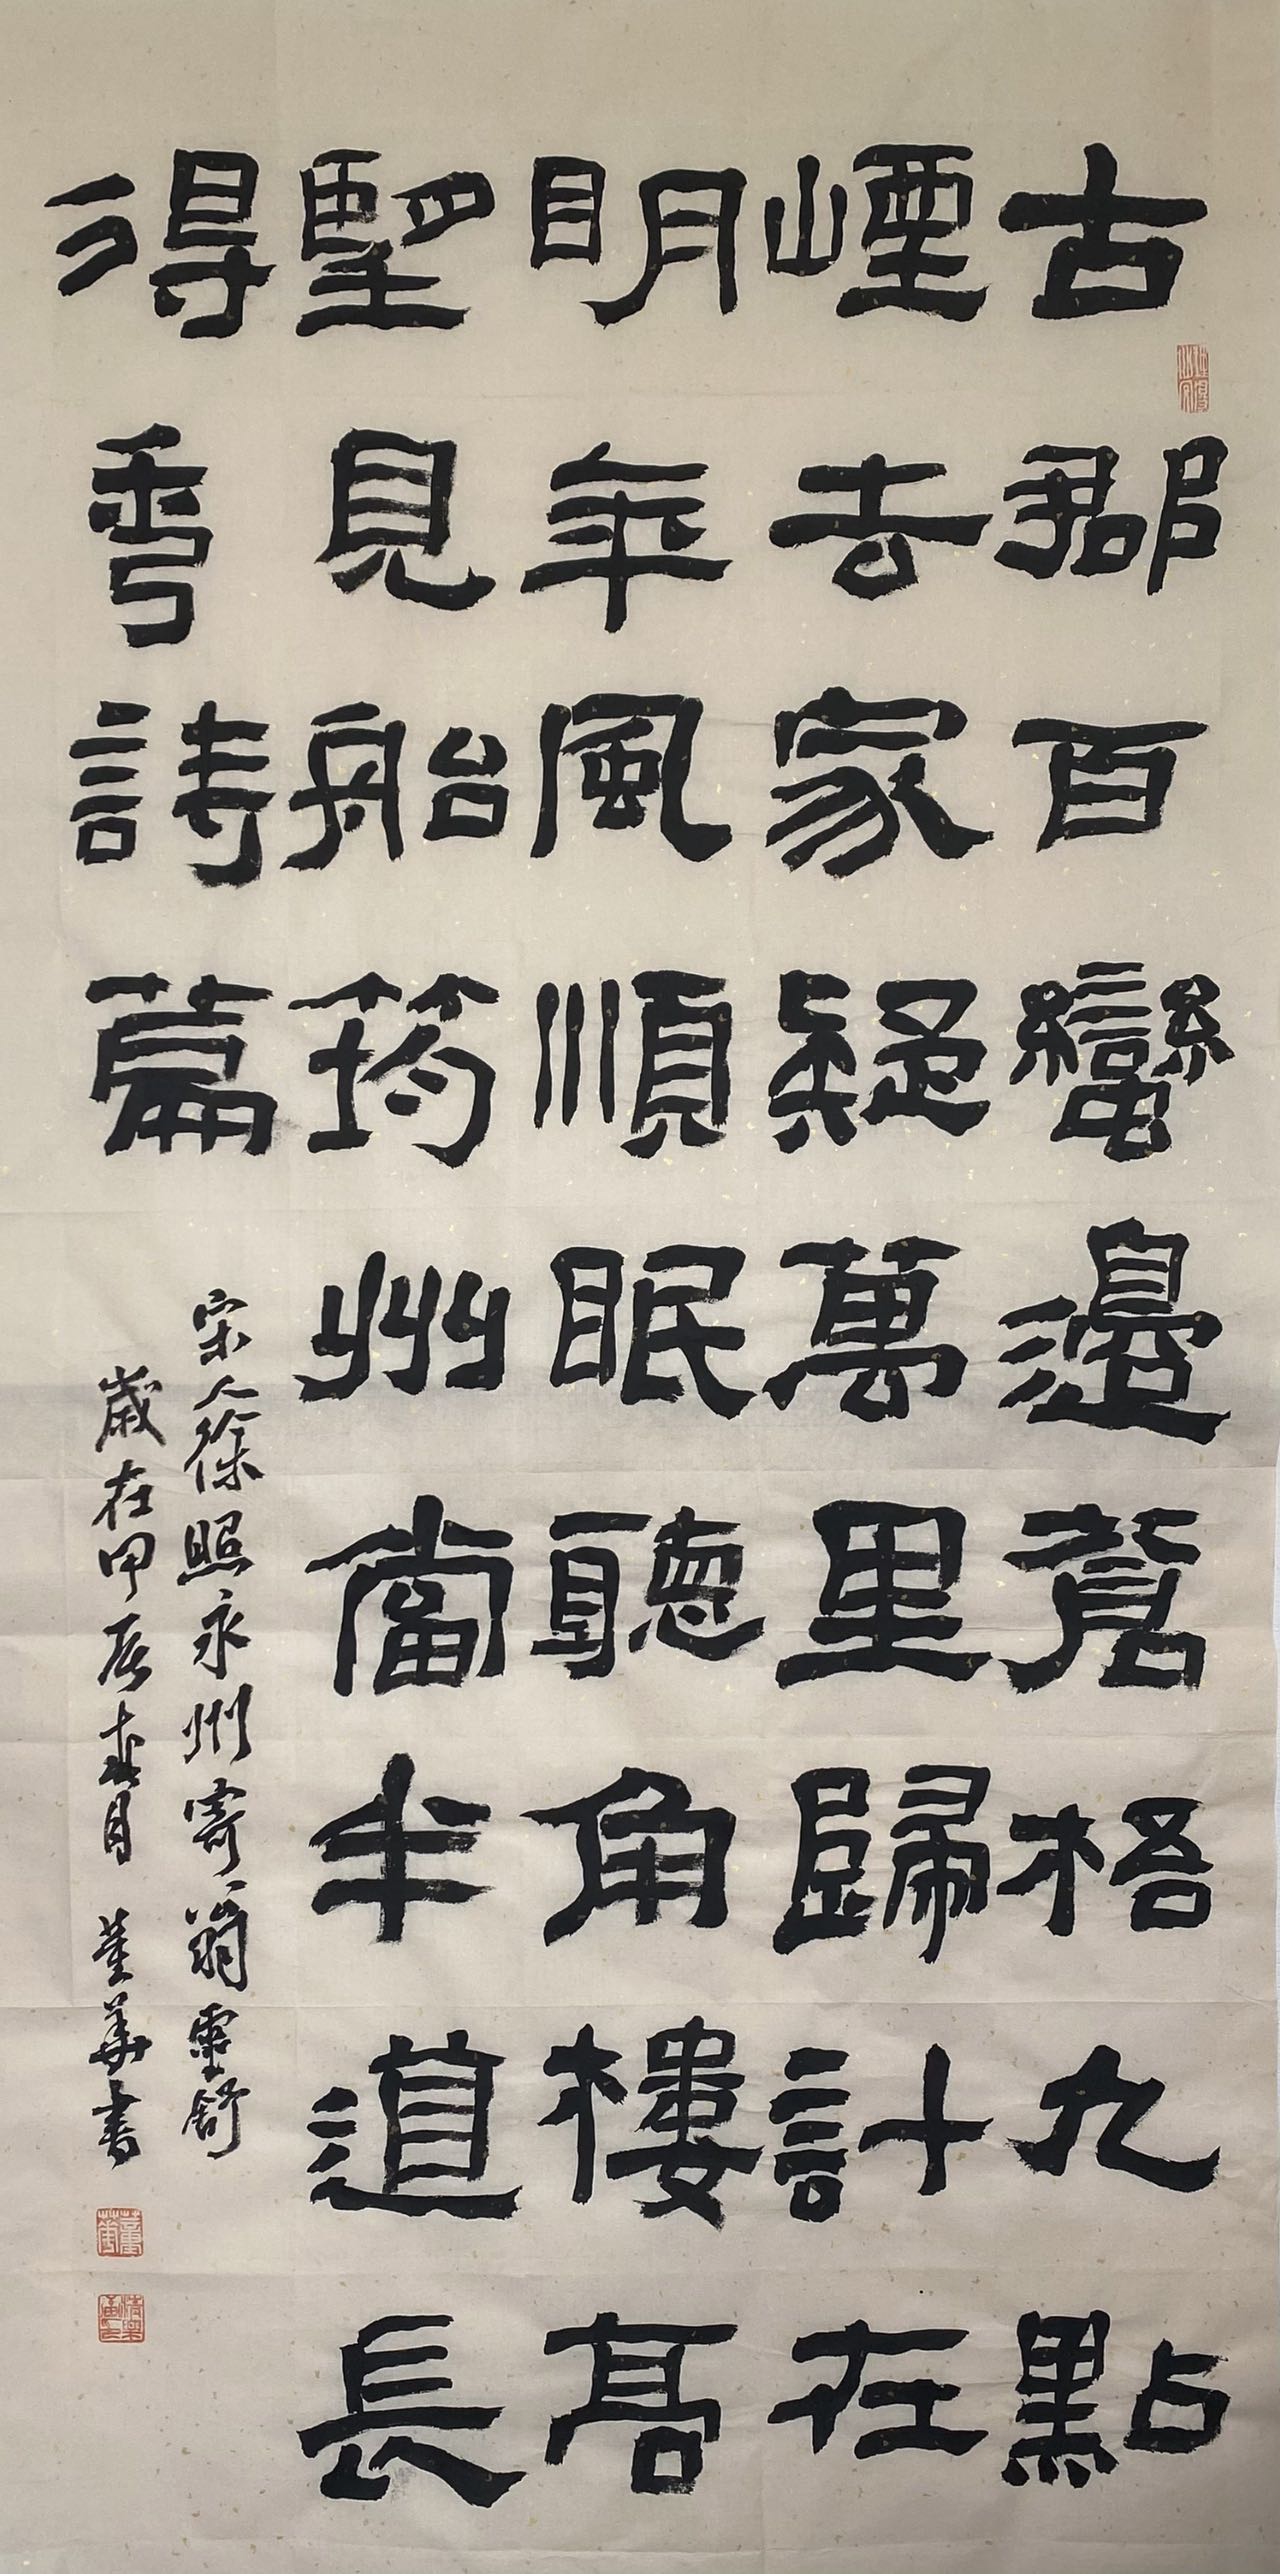 古郡百蠻邊蒼梧九點
煙去家疑萬里歸計在
明年風順眠聽角樓高
望見船筠州當半道長
得秀詩篇
宋人徐照永州寄翁靈舒
歲在甲辰春月 董華書
董華